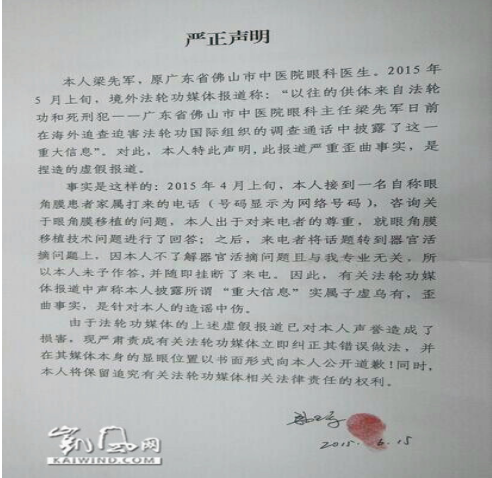 严正声明
本人梁先军，原广东省佛山市中医院眼科医生。2015 年
5 月上旬，境外法轮功媒体报道称：“以往的供体来自法轮
功和死刑犯——广东省佛山市中医院眼科主任梁先军日前
在海外追查迫害法轮功国际组织的调查通话中披露了这一
重大信息”。对此，本人特此声明，此报道严重歪曲事实，是
捏造的虚假报道。
事实是这样的：2015 年 4 月上旬，本人接到一名自称眼
角膜患者家属打来的电话（号码显示为网络号码），咨询关
于眼角膜移植的问题，本人出于对来电者的尊重，就眼角膜
移植技术问题进行了回答；之后，来电者将话题转到器官活
摘问题上，因本人不了解器官活摘问题且与我专业无关，所
以本人未予作答，并随即挂断了来电。因此，有关法轮功媒
体报道中声称本人披露所谓“重大信息”实属子虚乌有，歪
曲事实，是针对本人的造谣中伤。
由于法轮功媒体的上述虚假报道已对本人声誉造成了
损害，现严肃责成有关法轮功媒体立即纠正其错误做法，并
在其媒体本身的显眼位置以书面形式向本人公开道歉！同时，
本人将保留追究有关法轮功媒体相关法律责任的权利。
2015. 6.15
凯风网
KAIWIND.COM